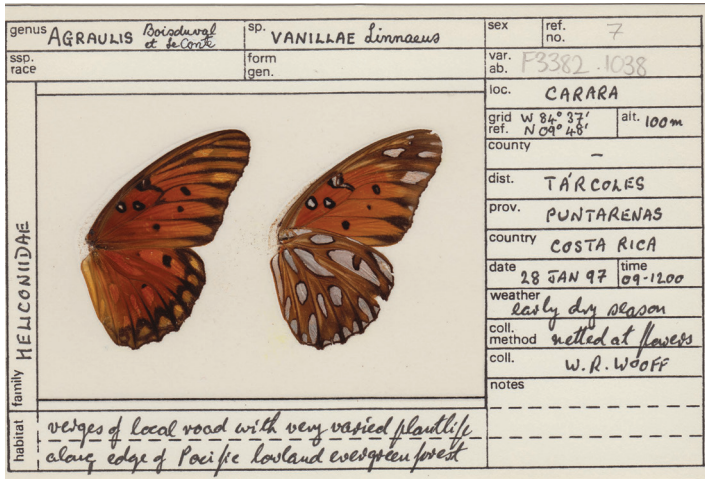 genus AGRAULIS Boisduval et Le Conte
sp. VANILLAE Linnaeus
sex
ref. no. 7
ssp. race
form gen.
var. ab. F3382.1038
loc. CARARA
grid ref. W 84° 37' N 09° 48'
alt. 100m
county –
dist. TÁRCOLES
prov. PUNTARENAS
country COSTA RICA
date 28 JAN 97
time 09-1200
weather early dry season
coll. method netted at flowers
coll. W.R. WOOFF
notes
family HELICONIIDAE
habitat verges of local road with very varied plantlife
along edge of Pacific lowland evergreen forest